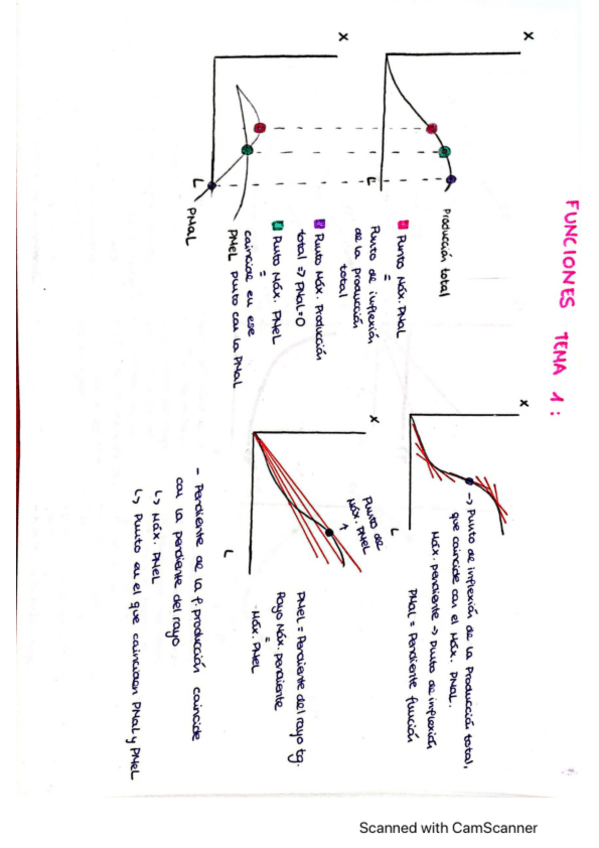 FUNCIONES TEMA 1:
X
Producción total
L
Punto Máx. PMaL
=
Punto de inflexión
de la producción
total
Punto Máx. Producción
total => PMaL=0
Punto Máx. PMeL
=
coincide en ese
punto con la PMaL
X
L
PMeL
PMaL
X
L
-> Punto de inflexión de la Producción total,
que coincide con el Máx. PMaL.
Máx. pendiente -> Punto de inflexión
PMaL = Pendiente función
X
L
Punto de
Máx. PMeL
PMeL = Pendiente del rayo tg.
Rayo Máx. pendiente
=
Máx. PMeL
- Pendiente de la f. producción coincide
con la pendiente del rayo
↳ Máx. PMeL
↳ Punto en el que coinciden PMaL y PMeL
Scanned with CamScanner